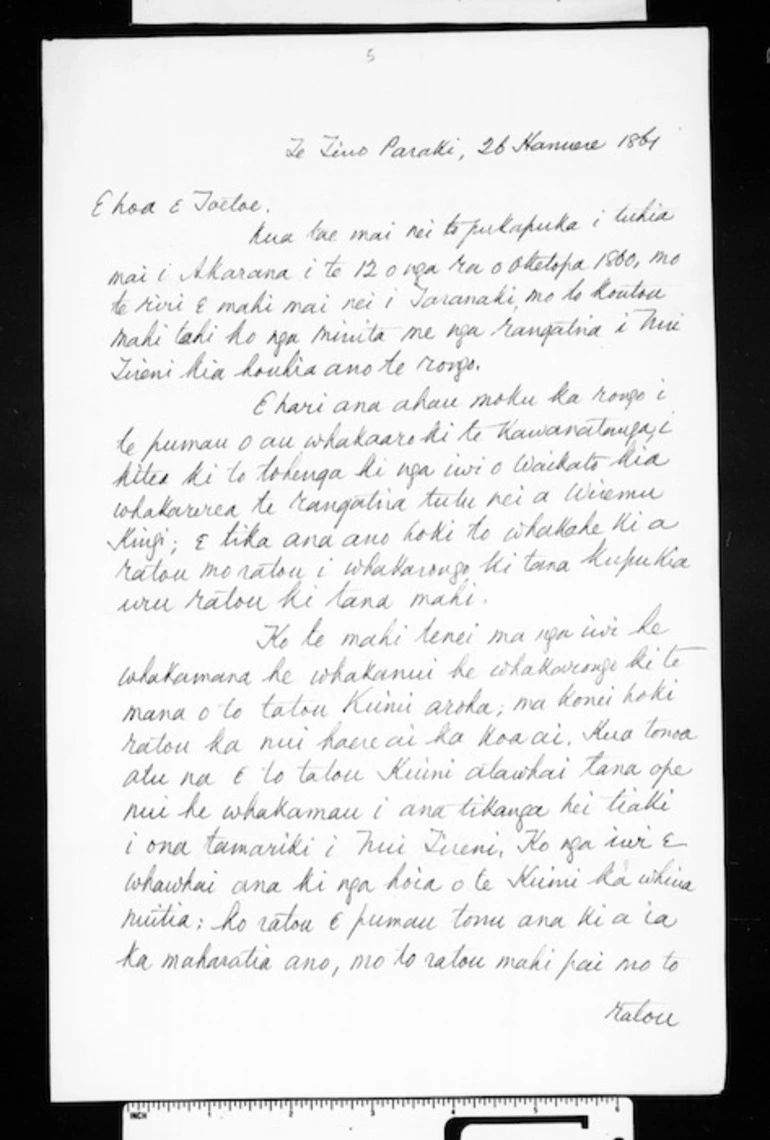 5
Te Tino Paraki, 26 Hanuere 1861
E hoa E Toetoe.
Kua tae mai nei to pukapuka i tuhia
mai i Akarana i te 12 o nga ra o Oketopa 1860, mo
te riri E mahi mai nei i Taranaki, mo to koutou
mahi tahi ko nga minita me nga rangatira i Nui
Tireni kia houhia ano te rongo.
E hari ana ahau moku ka rongo i
te pumau o au whakaaro ki te Kawanatanga, i
kitea ki to tohenga ki nga iwi o Waikato kia
whakarerea te rangatira tutu nei a Wiremu
Kingi; E tika ana ano hoki to whakahe ki a
ratou mo ratou i whakarongo ki tana kupu kia
uru ratou ki tana mahi.
Ko te mahi tenei ma nga iwi he
whakamana he whakanui he whakarongo ki te
mana o to tatou Kuini aroha; ma konei hoki
ratou ka nui haere ai ka koa ai. Kua tonoa
atu na E to tatou Kuini atawhai tana ope
nui he whakamau i ana tikanga hei tiaki
i ona tamariki i Nui Tireni. Ko nga iwi E
whawhai ana ki nga hoia o te Kuini ka whiua
nuitia: ko ratou E pumau tonu ana ki a ia
ka maharatia ano, mo to ratou mahi pai mo to
ratou
INCH 2 3 5 6